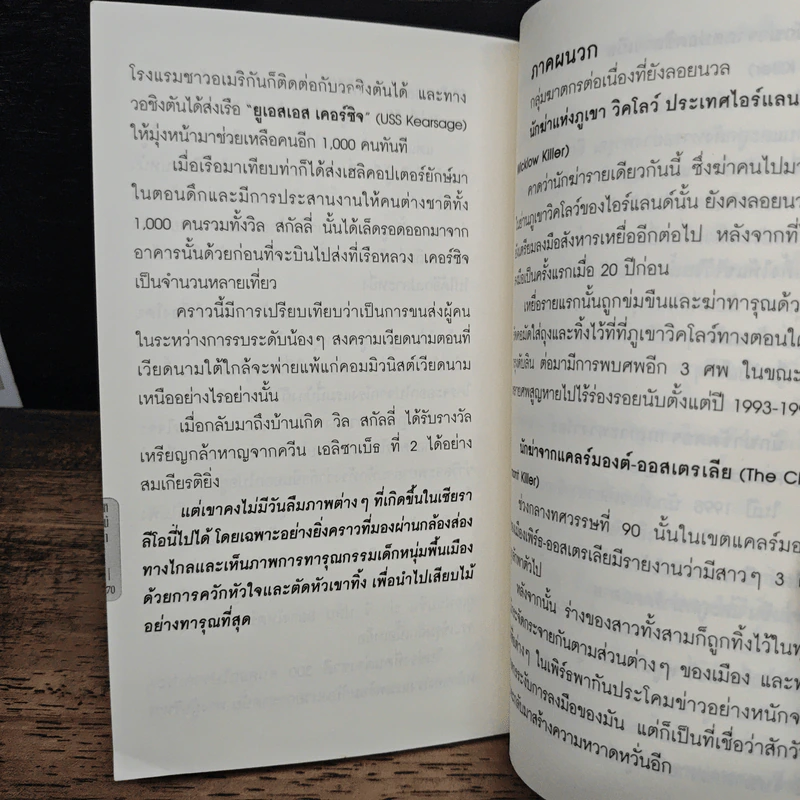 โรงแรมชาวอเมริกันก็ติดต่อกับวอชิงตันได้ และทาง
วอชิงตันได้ส่งเรือ "ยูเอสเอส เคอร์ซิจ" (USS Kearsage)
ให้มุ่งหน้ามาช่วยเหลือคนอีก 1,000 คนทันที
เมื่อเรือมาเทียบท่าก็ได้ส่งเฮลิคอปเตอร์ยักษ์มา
ในตอนดึกและมีการประสานงานให้คนต่างชาติทั้ง
1,000 คนรวมทั้งวิล สกัลลี่ นั้นได้เล็ดรอดออกมาจาก
อาคารนั้นด้วยก่อนที่จะบินไปส่งที่เรือหลวง เคอร์ซิจ
เป็นจำนวนหลายเที่ยว
คราวนี้มีการเปรียบเทียบว่าเป็นการขนส่งผู้คน
ในระหว่างการรบระดับน้องๆ สงครามเวียดนามตอนที่
เวียดนามใต้ใกล้จะพ่ายแพ้แก่คอมมิวนิสต์เวียดนาม
เหนืออย่างไรอย่างนั้น
เมื่อกลับมาถึงบ้านเกิด วิล สกัลลี่ ได้รับรางวัล
เหรียญกล้าหาญจากควีน เอลิซาเบ็ธ ที่ 2 ได้อย่าง
สมเกียรติยิ่ง
แต่เขาคงไม่มีวันลืมภาพต่างๆ ที่เกิดขึ้นในเซียรา
ลีโอนี้ไปได้ โดยเฉพาะอย่างยิ่งคราวที่มองผ่านกล้องส่อง
ทางไกลและเห็นภาพการทารุณกรรมเด็กหนุ่มพื้นเมือง
ด้วยการควักหัวใจและตัดหัวเขาทิ้ง เพื่อนำไปเสียบไม้
อย่างทารุณที่สุด
70
ภาคผนวก
กลุ่มฆาตกรต่อเนื่องที่ยังลอยนวล
นักฆ่าแห่งภูเขา วิคโลว์ ประเทศไอร์แลน
Wicklow Killer)
คาดว่านักฆ่ารายเดียวกันนี้ ซึ่งฆ่าคนไปมา
ในย่านภูเขาวิคโลว์ของไอร์แลนด์นั้น ยังคงลอยนว
เตรียมลงมือสังหารเหยื่ออีกต่อไป หลังจากที่
เมื่อเป็นครั้งแรกเมื่อ 20 ปีก่อน
เหยื่อรายแรกนั้นถูกข่มขืนและฆ่าทารุณด้ว
มัดใส่ถุงและทิ้งไว้ที่ที่ภูเขาวิคโลว์ทางตอนใต
ดับลิน ต่อมามีการพบศพอีก 3 ศพ ในขณะ
ศพสูญหายไปไร้ร่องรอยนับตั้งแต่ปี 1993-19
นักฆ่าจากแคลร์มองต์-ออสเตรเลีย (The Cl
Killer)
ช่วงกลางทศวรรษที่ 90 นั้นในเขตแคลร์มอ
เมืองเพิร์ธ-ออสเตรเลียมีรายงานว่ามีสาวๆ 3
พาตัวไป
หลังจากนั้น ร่างของสาวทั้งสามก็ถูกทิ้งไว้ใน
กระจายกันตามส่วนต่างๆ ของเมือง และ
ต่างๆ ในเพิร์ธพากันประโคมข่าวอย่างหนัก
ระงับการลงมือของมัน แต่ก็เป็นที่เชื่อว่าสักวั
กลับมาสร้างความหวาดหวั่นอีก